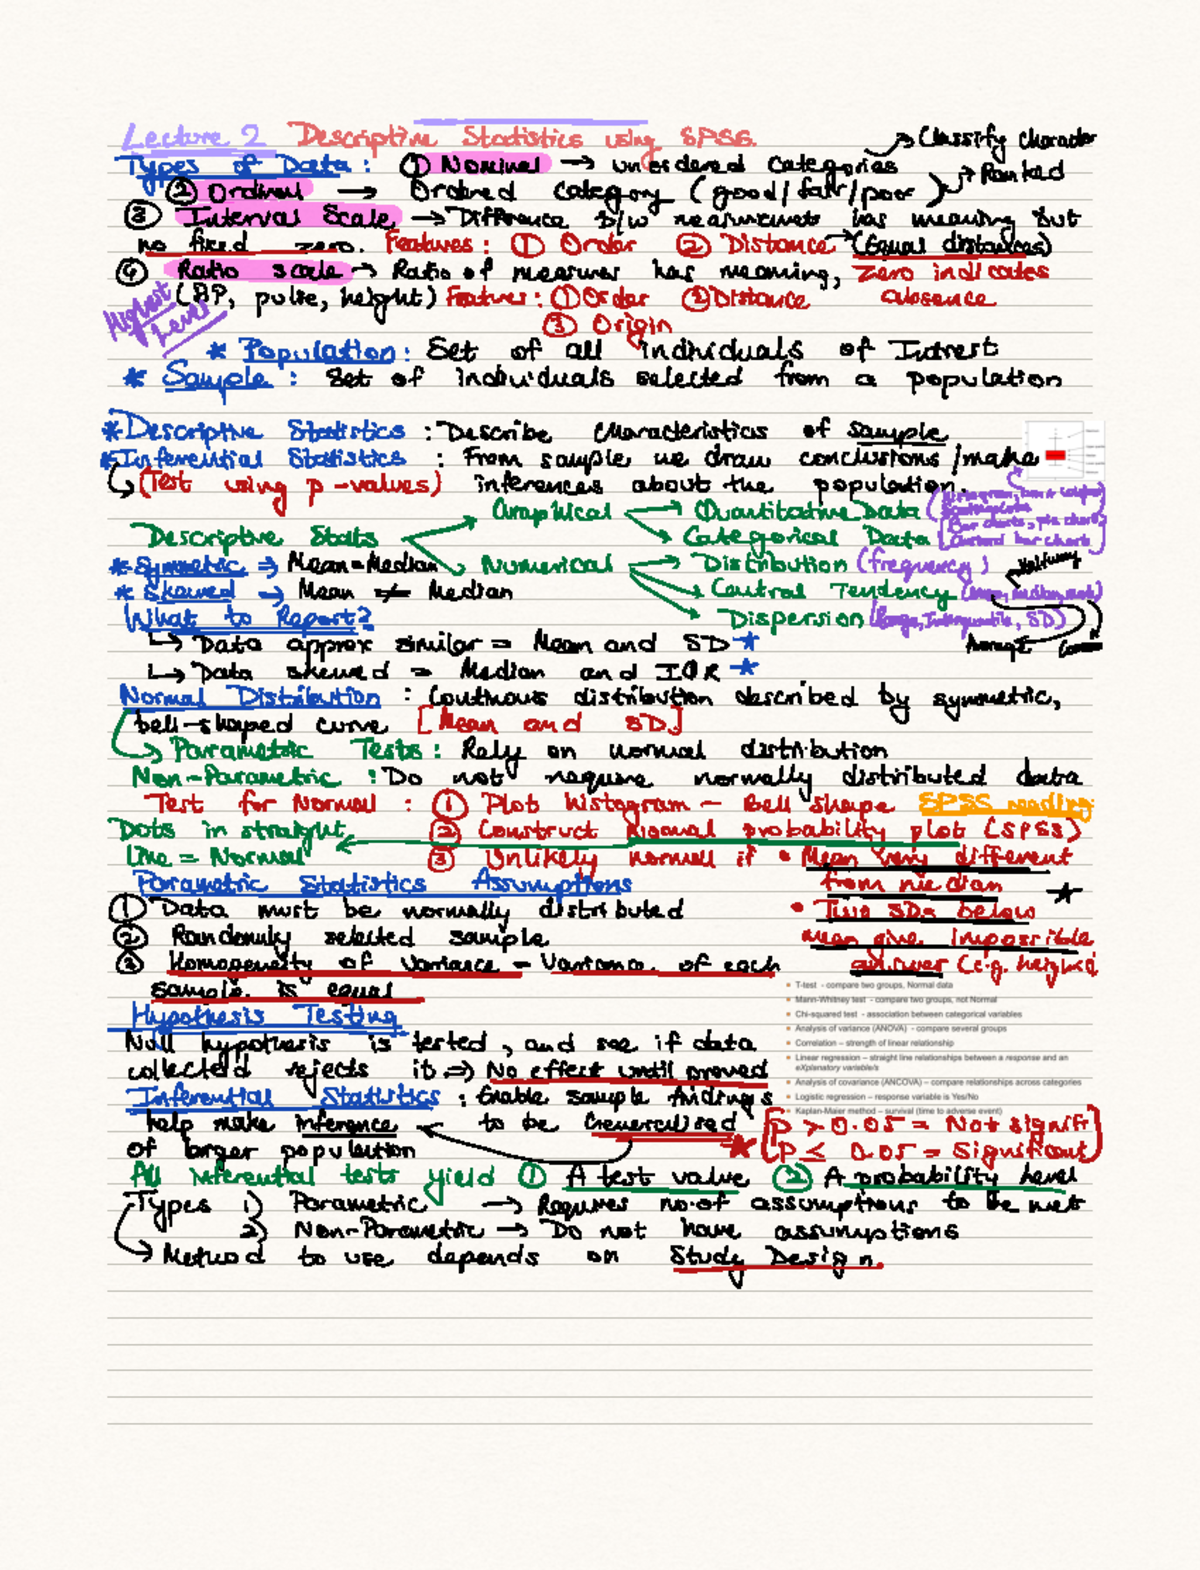 Lecture 2 Descriptive Statistics using SPSS
Types of Data : ① Nominal → unordered categories → Classify character
② Ordinal → Ordered Category (good/fair/poor) → Ranked
③ Interval Scale → Difference b/w measurements has meaning but
no fixed zero. Features : ① Order ② Distance → (Equal distances)
④ Ratio scale → Ratio of measures has meaning, Zero indicates
(BP, pulse, height) Features : ① Order ② Distance absence
Highest Level
③ Origin
* Population : Set of all individuals of Intrest
* Sample : Set of individuals selected from a population
* Descriptive Statistics : Describe Characteristics of Sample
* Inferential Statistics : From sample we draw conclusions/make
(Test using p-values) inferences about the population.
Graphical → Quantitative Data
Descriptive Stats → Categorical Data (Bar charts, pie charts,
Clustered bar charts)
* Symmetric ⇒ Mean=Median Numerical → Distribution (frequency)
* Skewed ⇒ Mean ≠ Median → Central Tendency (Mean, median, mode)
What to Report? → Dispersion (Range, Interquartile, SD)
↳ Data approx similar = Mean and SD * Average
↳ Data skewed = Median and IQR *
Normal Distribution : Continous distribution described by symmetric,
bell-shaped curve [Mean and SD]
→ Parametric Tests : Rely on normal distribution
Non-Parametric : Do not require normally distributed data
Test for Normal : ① Plot histogram – Bell shape SPSS reading
Dots in straight ② Construct Normal probability plot (SPSS)
line = Normal ③ Unlikely normal if • Mean very different
Parametric Statistics Assumptions from median ★
① Data must be normally distributed • Two SDs below
② Randomly selected sample mean give impossible
③ Homogeneity of Variance – Variance of each answer (e.g. height)
sample is equal
T-test - compare two groups, Normal data
Mann-Whitney test - compare two groups, not Normal
Chi-squared test - association between categorical variables
Analysis of variance (ANOVA) - compare several groups
Correlation – strength of linear relationship
Linear regression – straight line relationships between a response and an
eXplanatory variable/s
Analysis of covariance (ANCOVA) – compare relationships across categories
Logistic regression – response variable is Yes/No
Kaplan-Maier method – survival (time to adverse event)
Hypothesis Testing
Null hypothesis is tested, and see if data
collected rejects it ⇒ No effect until proved
Inferential Statistics : Enable sample findings
help make inference ← to be Generalised
of larger population
[p > 0.05 = Not signifi
p ≤ 0.05 = Significant]
All inferential tests yield ① A test value ② A probability level
Types 1) Parametric → Requires no.of assumptions to be met
2) Non-Parametric → Do not have assumptions
→ Method to use depends on Study Design.